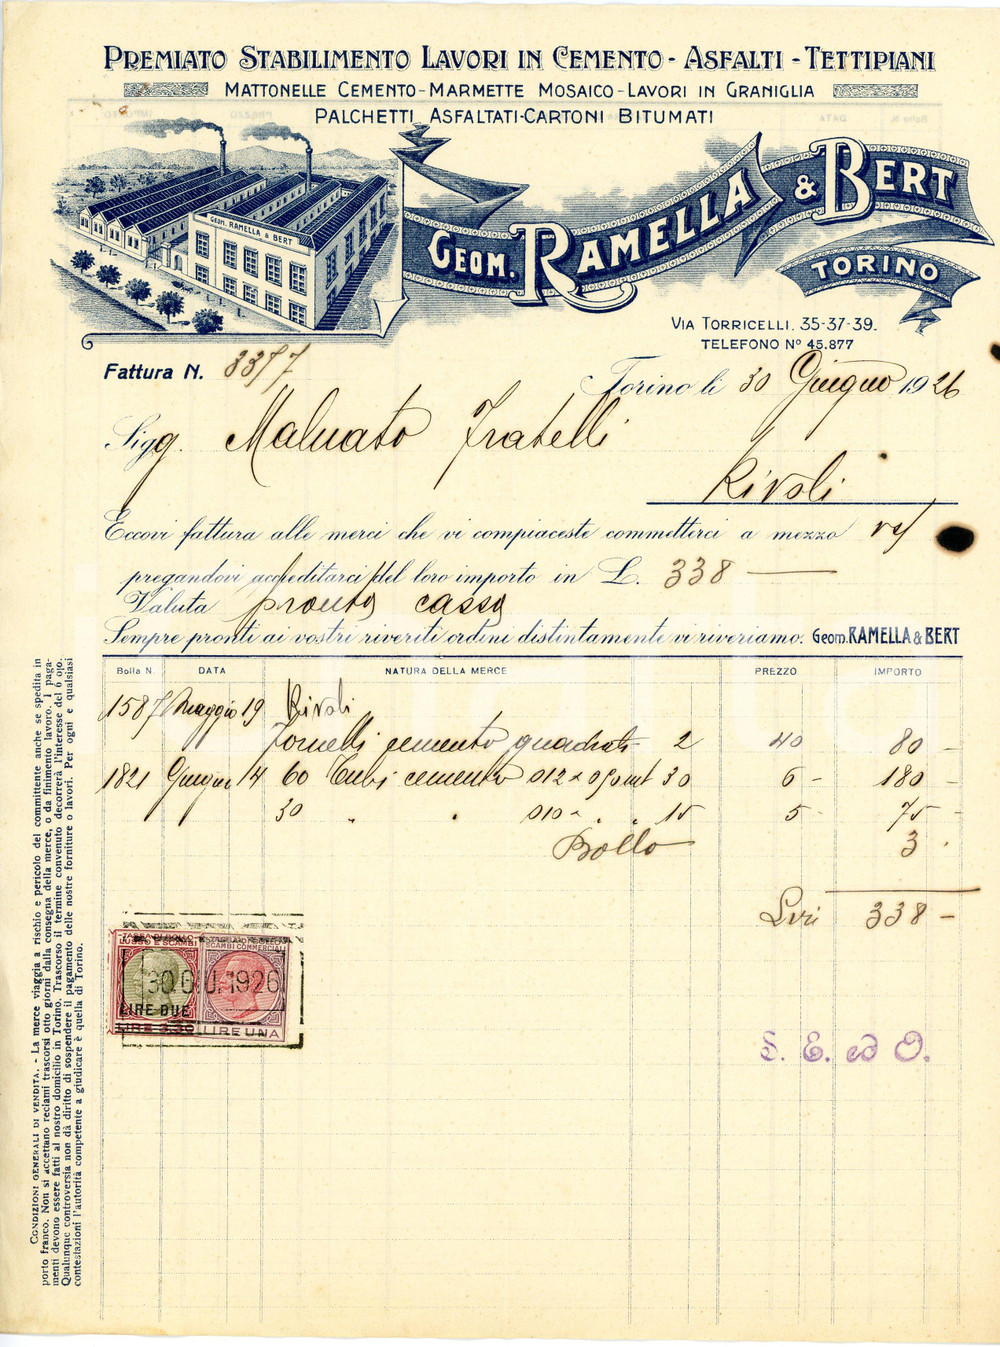 PREMIATO STABILIMENTO LAVORI IN CEMENTO - ASFALTI - TETTIPIANI
MATTONELLE CEMENTO - MARMETTE MOSAICO - LAVORI IN GRANIGLIA
PALCHETTI ASFALTATI - CARTONI BITUMATI
GEOM. RAMELLA & BERT
GEOM. RAMELLA & BERT
TORINO
VIA TORRICELLI. 35-37-39.
TELEFONO Nº 45.877
Fattura N.
Torino li 30 Giugno 1926
Sigg. Malvato Fratelli
Rivoli
Eccovi fattura alle merci che vi compiaceste commetterci a mezzo
pregandovi accreditarci del loro importo in L. 338
Valuta pronta cassa
Sempre pronti ai vostri riveriti ordini distintamente vi riveriamo. Geom. RAMELLA & BERT
Bolla N. DATA NATURA DELLA MERCE PREZZO IMPORTO
1587 Maggio 19 Rivoli
Tornelli cemento quadrati 2 40 80 -
1821 Giugno 4 60 Tubi cemento 012 x mt 30 6 - 180 -
30 " " 010 " " 15 5 - 75 -
Bollo 3 -
Lire 338 -
TASSA DI BOLLO
LUSSO E SCAMBI
SCAMBI COMMERCIALI
30 GIU. 1926
LIRE DUE
LIRE UNA
S. E. ed O.
CONDIZIONI GENERALI DI VENDITA. - La merce viaggia a rischio e pericolo del committente anche se spedita in
porto franco. Non si accettano reclami trascorsi otto giorni dalla consegna della merce, o da finimento lavoro. I paga-
menti devono essere fatti al nostro domicilio in Torino. Trascorso il termine convenuto decorrerà l'interesse del 6 o|o.
Qualunque controversia non dà diritto di sospendere il pagamento delle nostre forniture o lavori. Per ogni e qualsiasi
contestazioni l'autorità competente a giudicare è quella di Torino.